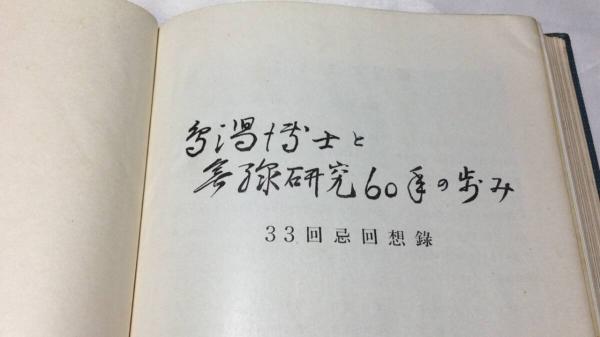 鳥潟博士と
無線研究60年の歩み
33回忌回想録